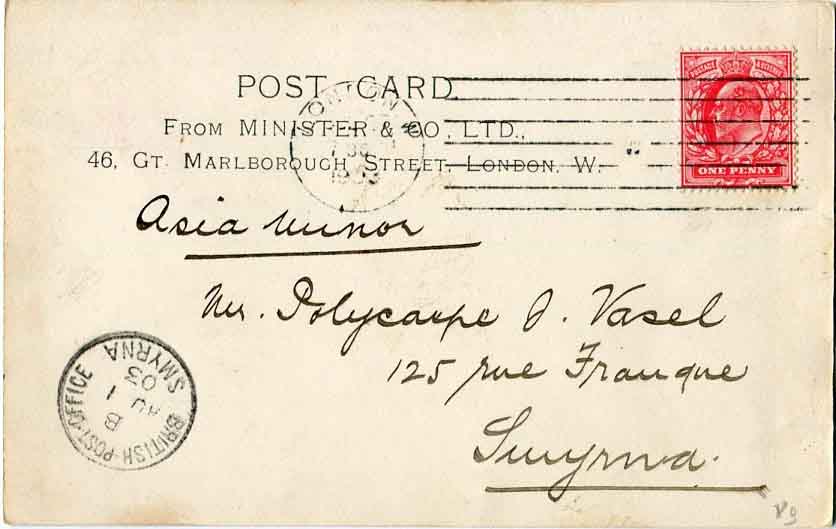 POST CARD
FROM MINISTER & CO. LTD.,
46, GT MARLBOROUGH STREET, LONDON, W.
POSTAGE REVENUE
ONE PENNY
LONDON
1903
Asia Minor
Mr. Polycarpe J. Vasel
125 rue Franque
Smyrna.
BRITISH POST OFFICE
B
AU 1
03
SMYRNA